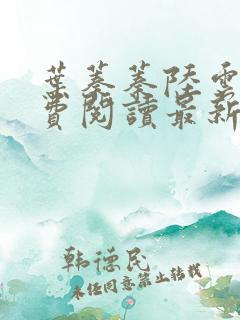 葉蓁蓁陸雲
費閱讀最新
韩德民
未经同意禁止转载